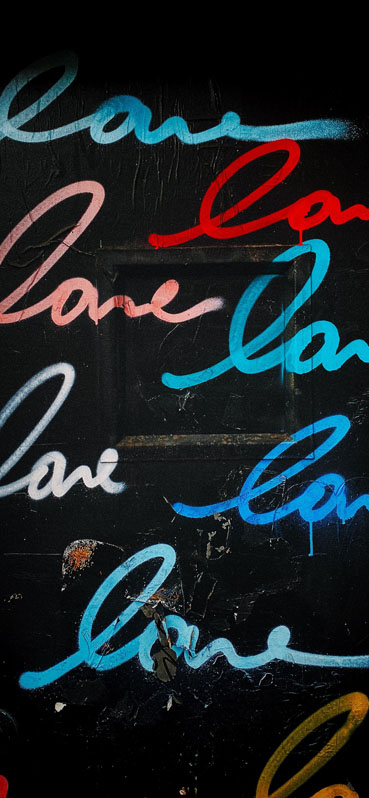 love
lo
love
lo
love
lo
love
lo